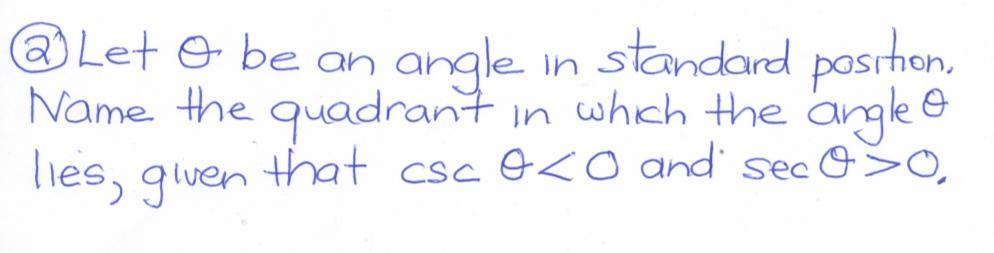 ② Let θ be an angle in standard position.
Name the quadrant in which the angle θ
lies, given that csc θ<0 and sec θ>0.